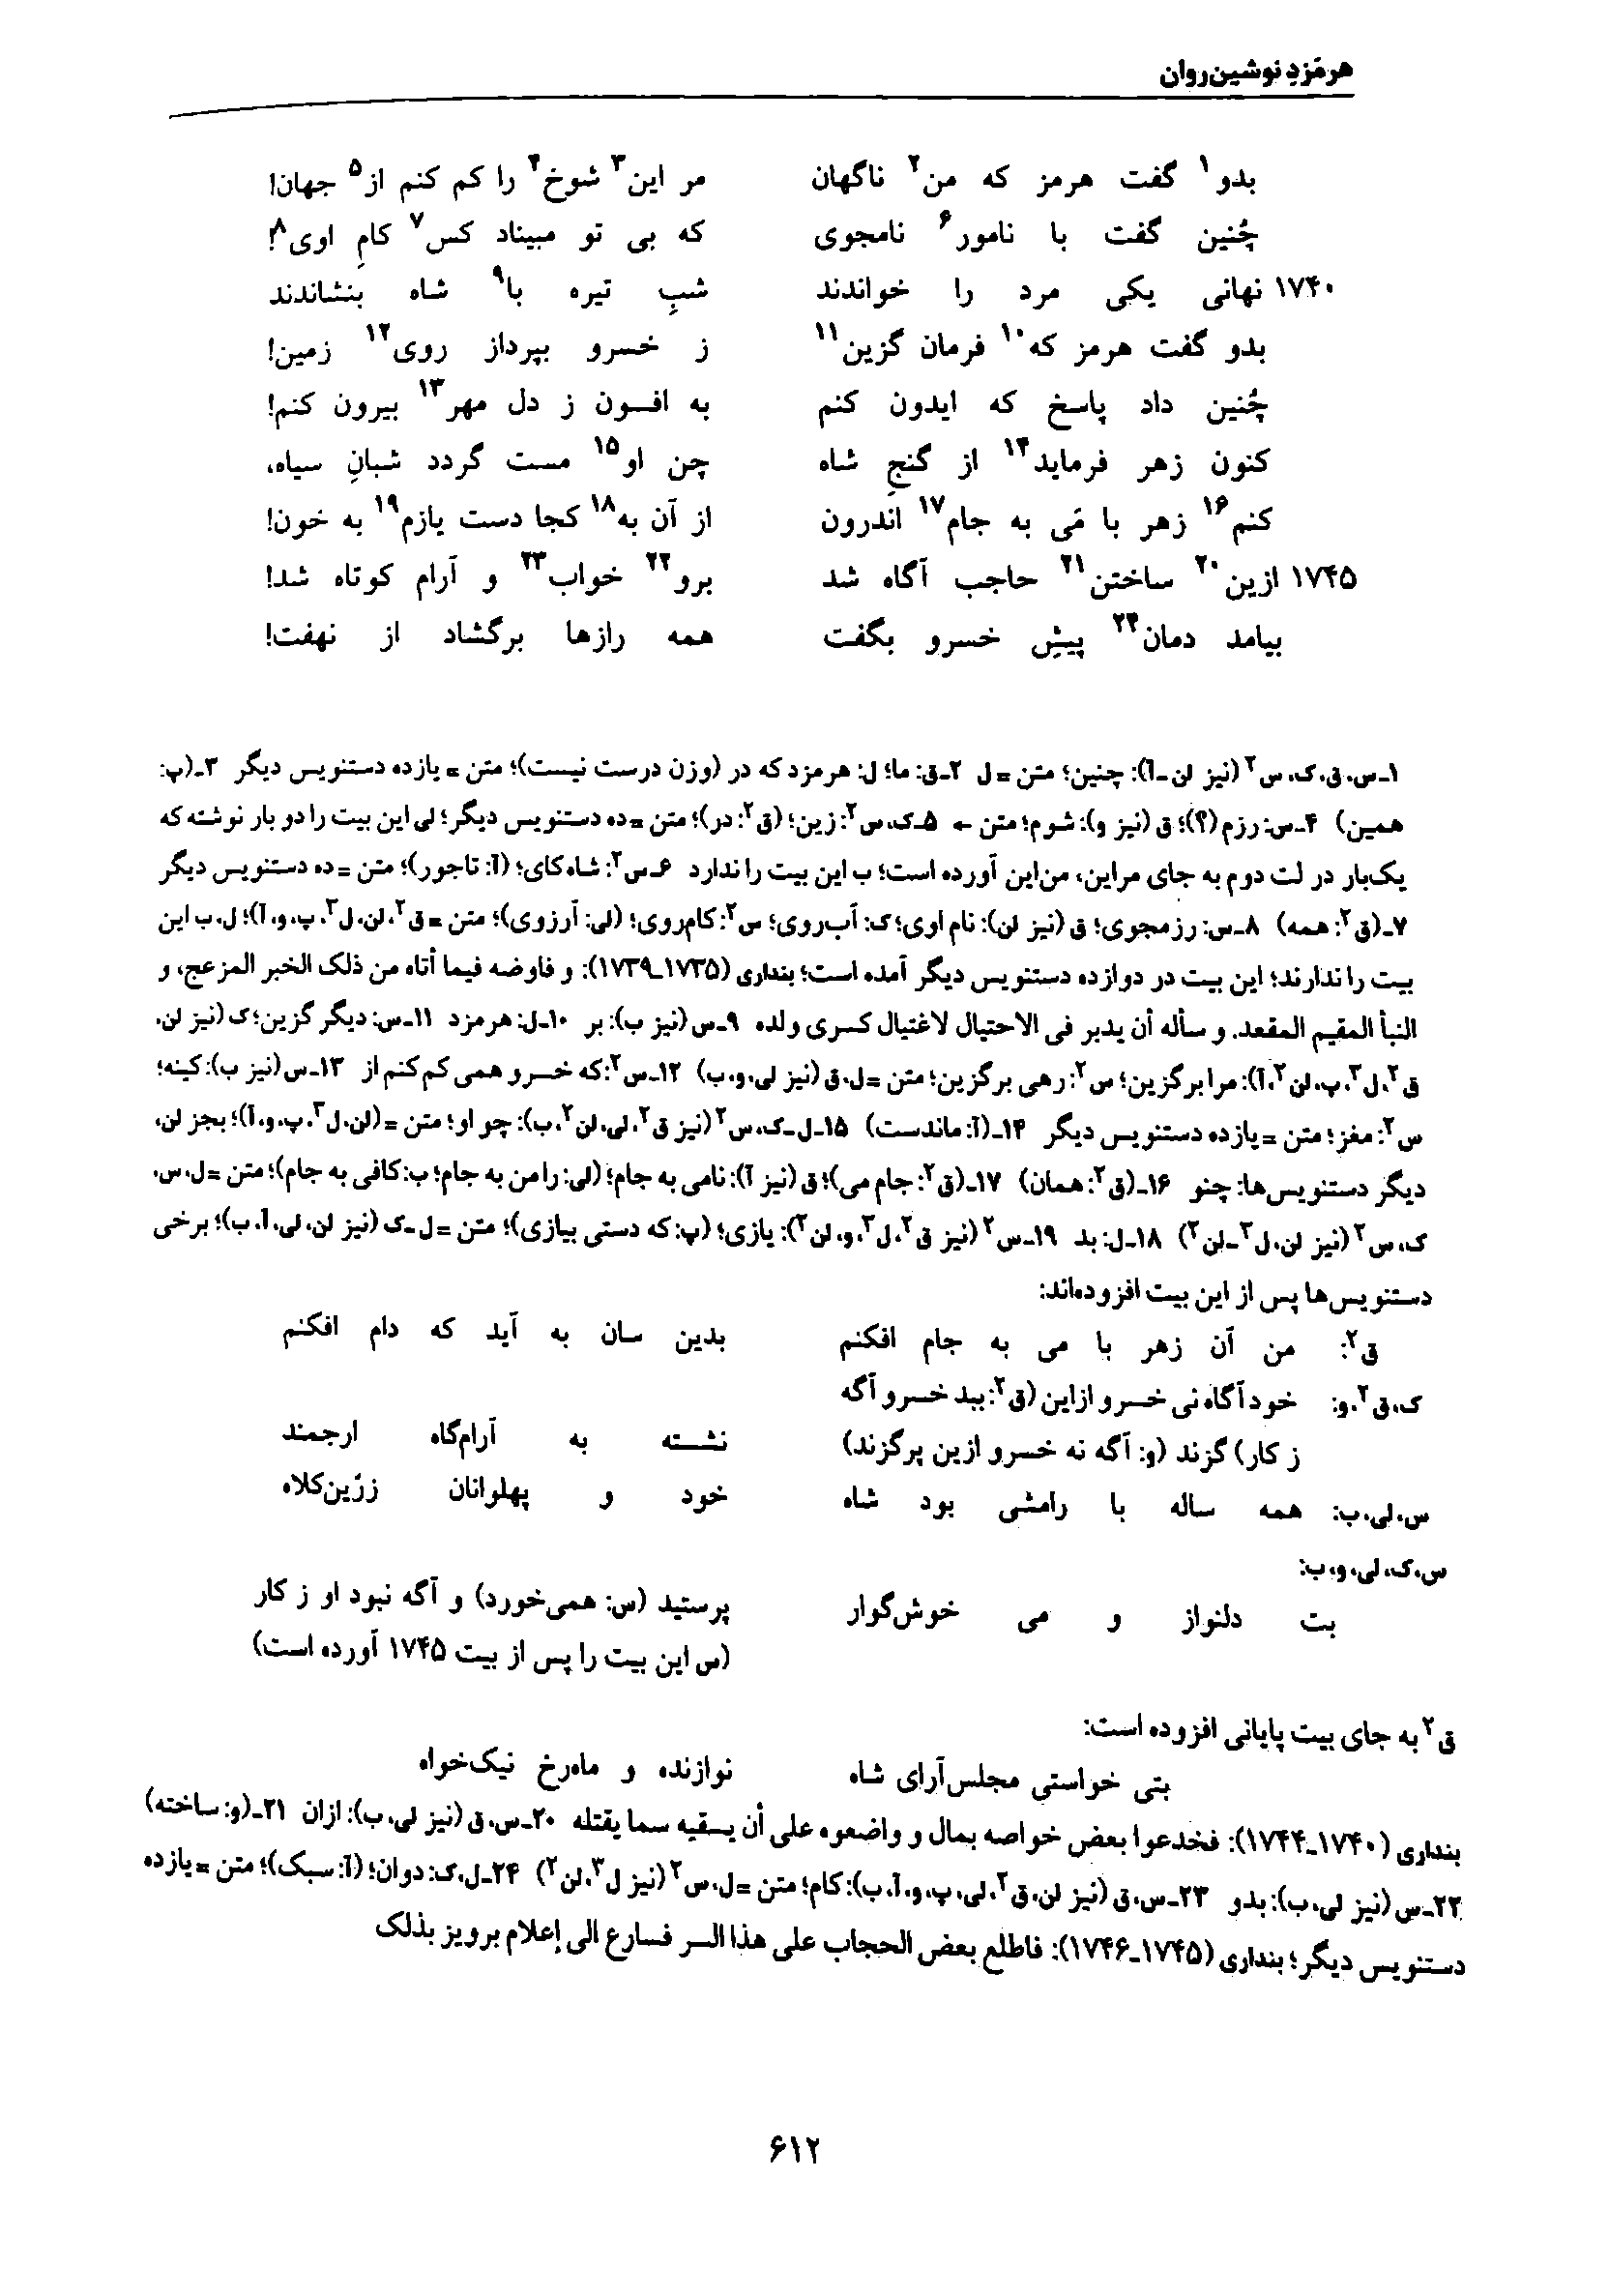 هرمَزدِ نوشین‌روان
بدو۱ گفت هرمز که من۲ ناگهان مر این۳ شوخ۴ را کم کنم از۵ جهان!
چُنین گفت با نامور۶ نامجوی که بی تو مبیناد کس۷ کامِ اوی۸!
۱۷۴۰ نهانی یکی مرد را خواندند شبِ تیره با۹ شاه بنشاندند
بدو گفت هرمز که۱۰ فرمان گزین۱۱ ز خسرو بپرداز روی۱۲ زمین!
چُنین داد پاسخ که ایدون کنم به افسون ز دل مهر۱۳ بیرون کنم!
کنون زهر فرماید۱۴ از گنجِ شاه چن او۱۵ مست گردد شبانِ سیاه،
کنم۱۶ زهر با مَی به جام۱۷ اندرون از آن به۱۸ کجا دست یازم۱۹ به خون!
۱۷۴۵ ازین۲۰ ساختن۲۱ حاجب آگاه شد برو۲۲ خواب۲۳ و آرام کوتاه شد!
بیامد دمان۲۴ پیشِ خسرو بگفت همه رازها برگشاد از نهفت!
۱ـ س، ق، ک، س۲ (نیز لن ـ آ): چنین؛ متن = ل ۲ـ ق: ما؛ ل: هرمزد که در (وزن درست نیست)؛ متن = یازده دستنویس دیگر ۳ـ (پ:
همین) ۴ـ س: رزم (؟)؛ ق (نیز و): شوم؛ متن ← ۵ـ ک، س۲: زین؛ (ق۲: در)؛ متن = ده دستنویس دیگر؛ لی این بیت را دو بار نوشته که
یک‌بار در لت دوم به جای مراین، من‌این آورده است؛ ب این بیت را ندارد ۶ـ س۲: شاه‌کای؛ (آ: تاجور)؛ متن = ده دستنویس دیگر
۷ـ (ق۲: همه) ۸ـ س: رزمجوی؛ ق (نیز لن): نام اوی؛ ک: آب‌روی؛ س۲: کام‌روی؛ (لی: آرزوی)؛ متن = ق۲، لن، ل۳، پ، و، آ)؛ ل، ب این
بیت را ندارند؛ این بیت در دوازده دستنویس دیگر آمده است؛ بنداری (۱۷۳۵ـ۱۷۳۹): و فاوضه فیما أتاه من ذلک الخبر المزعج، و
النبأ المقیم المقعد. و سأله أن یدبر فی الاحتیال لاغتیال کسری ولده ۹ـ س (نیز ب): بر ۱۰ـ ل: هرمزد ۱۱ـ س: دیگر گزین؛ ک (نیز لن،
ق۲، ل۳، پ، لن۲، آ): مرا برگزین؛ س۲: رهی برگزین؛ متن = ل، ق (نیز لی، و، ب) ۱۲ـ س۲: که خسرو همی کم کنم از ۱۳ـ س (نیز ب): کینه؛
س۲: مغز؛ متن = یازده دستنویس دیگر ۱۴ـ (آ: ماندست) ۱۵ـ ل ـ ک، س۲ (نیز ق۲، لی، لن۲، ب): چو او؛ متن = (لن، ل۳، پ، و، آ)؛ بجز لن،
دیگر دستنویس‌ها: چنو ۱۶ـ (ق۲: همان) ۱۷ـ (ق۲: جام می)؛ ق (نیز آ): نامی به جام؛ (لی: را من به جام؛ ب: کافی به جام)؛ متن = ل، س،
ک، س۲ (نیز لن، ل۳ ـ لن۲) ۱۸ـ ل: بد ۱۹ـ س۲ (نیز ق۲، ل۳، و، لن۲): یازی؛ (پ: که دستی بیازی)؛ متن = ل ـ ک (نیز لن، لی، آ، ب)؛ برخی
دستنویس‌ها پس از این بیت افزوده‌اند:
ق۲: من آن زهر با می به جام افکنم بدین سان به آید که دام افکنم
ک، ق۲، و: خود آگاه نی خسرو از این (ق۲: ببد خسرو آگه
ز کار) گزند (و: آگه نه خسرو ازین پرگزند) نشسته به آرام‌گاه ارجمند
س، لی، ب: همه ساله با رامشی بود شاه خود و پهلوانان زرّین‌کلاه
س، ک، لی، و، ب:
بت دلنواز و می خوش‌گوار پرستید (س: همی‌خورد) و آگه نبود او ز کار
(س این بیت را پس از بیت ۱۷۴۵ آورده است)
ق۲ به جای بیت پایانی افزوده است:
بتی خواستی مجلس‌آرای شاه نوازنده و ماه‌رخ نیک‌خواه
بنداری (۱۷۴۰ـ۱۷۴۴): فخدعوا بعض خواصه بمال و واضعوه علی أن یسقیه سما یقتله ۲۰ـ س، ق (نیز لی، ب): ازان ۲۱ـ (و: ساخته)
۲۲ـ س (نیز لی، ب): بدو ۲۳ـ س، ق (نیز لن، ق۲، لی، پ، و، آ، ب): کام؛ متن = ل، س۲ (نیز ل۳، لن۲) ۲۴ـ ل، ک: دوان؛ (آ: سبک)؛ متن = یازده
دستنویس دیگر؛ بنداری (۱۷۴۵ـ۱۷۴۶): فاطلع بعض الحجاب علی هذا السر فسارع الی إعلام برویز بذلک
۶۱۲